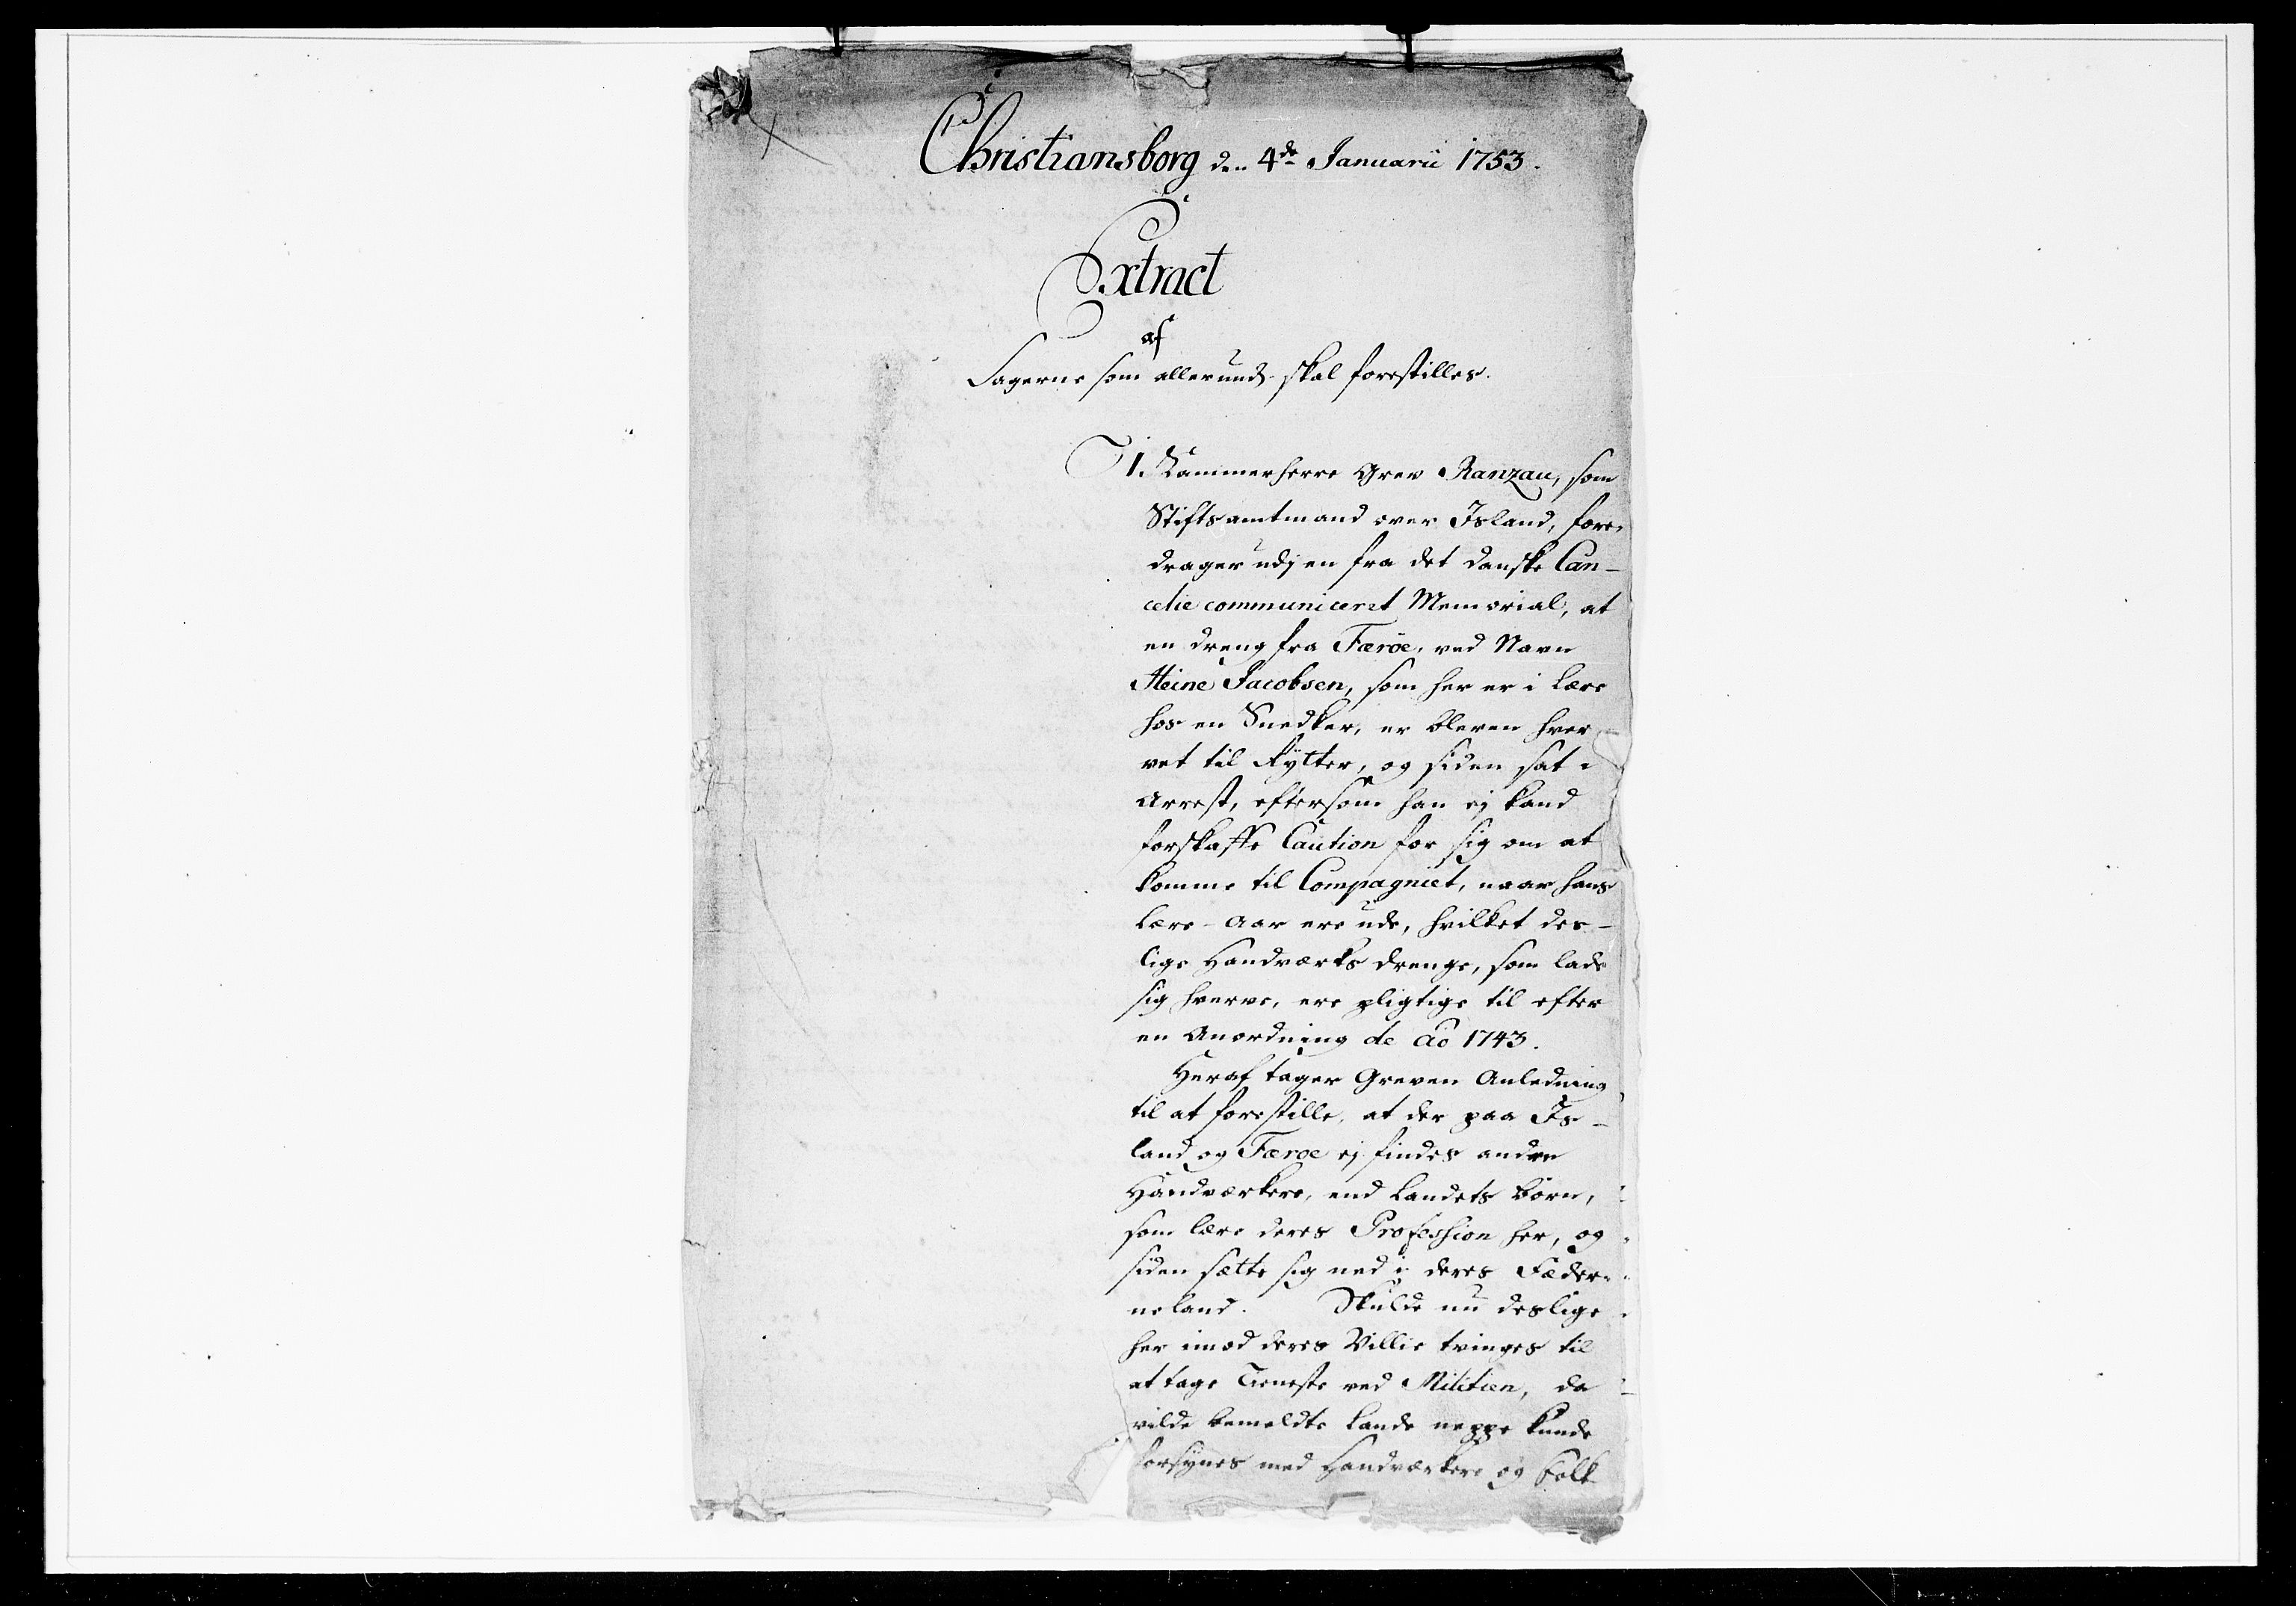 Christiansborg den 4de Januarii 1753.
Extract
af
Sagerne som allerund. skal forestilles.
1. Kammerherre Grev Ranzau, som
Stiftsamtmand over Island, fore-
drager udj en fra det danske Can-
celie communiceret Memorial, at
en dreng fra Færöe, ved Navn
Heine Jacobsen, som her er i lære
hos en Snedker, er bleven hver-
vet til Rytter, og siden sat i
Arrest, eftersom han ej kand
forskaffe Caution for sig om at
komme til Compagniet, naar hans
lære-Aar ere ude, hvilket des-
lige Handværks drenge, som lade
sig hverve, ere pligtige til efter
en Anordning de Ao 1743.
Heraf tager Greven Anledning
til at forestille, at der paa Is-
land og Færoe ej findes andre
Handværkere, end Landets børn,
som lære deres Profession her, og
siden sætte sig ned i deres Fæder-
neland. Skulde nu deslige
her imod deres Villie tvinges til
at tage Tieneste ved Militien, da
vilde bemeldte Lande neppe kunde
forsynes med Handværkere og Folk